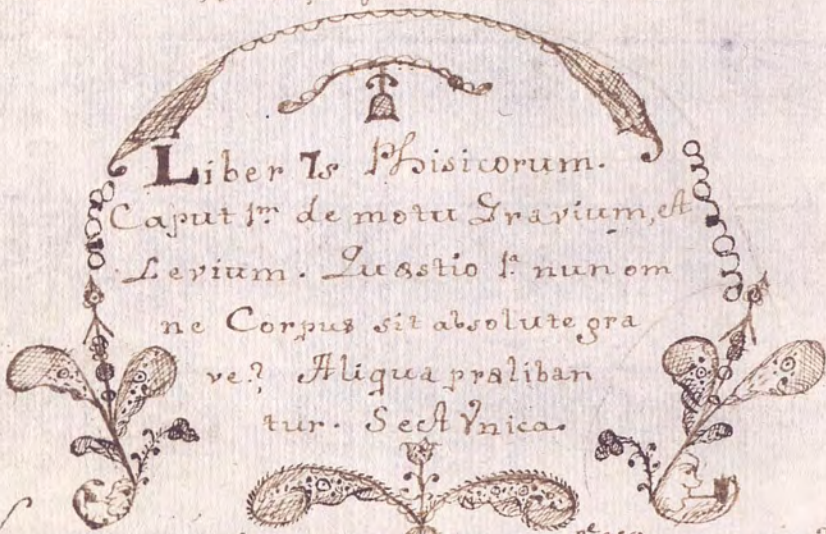 Liber 7s Phisicorum.
Caput 1m de motu Gravium, et
Levium. Quæstio 1a nun om
ne Corpus sit absolute gra
ve? Aliqua præliban
tur. Sect Vnica.